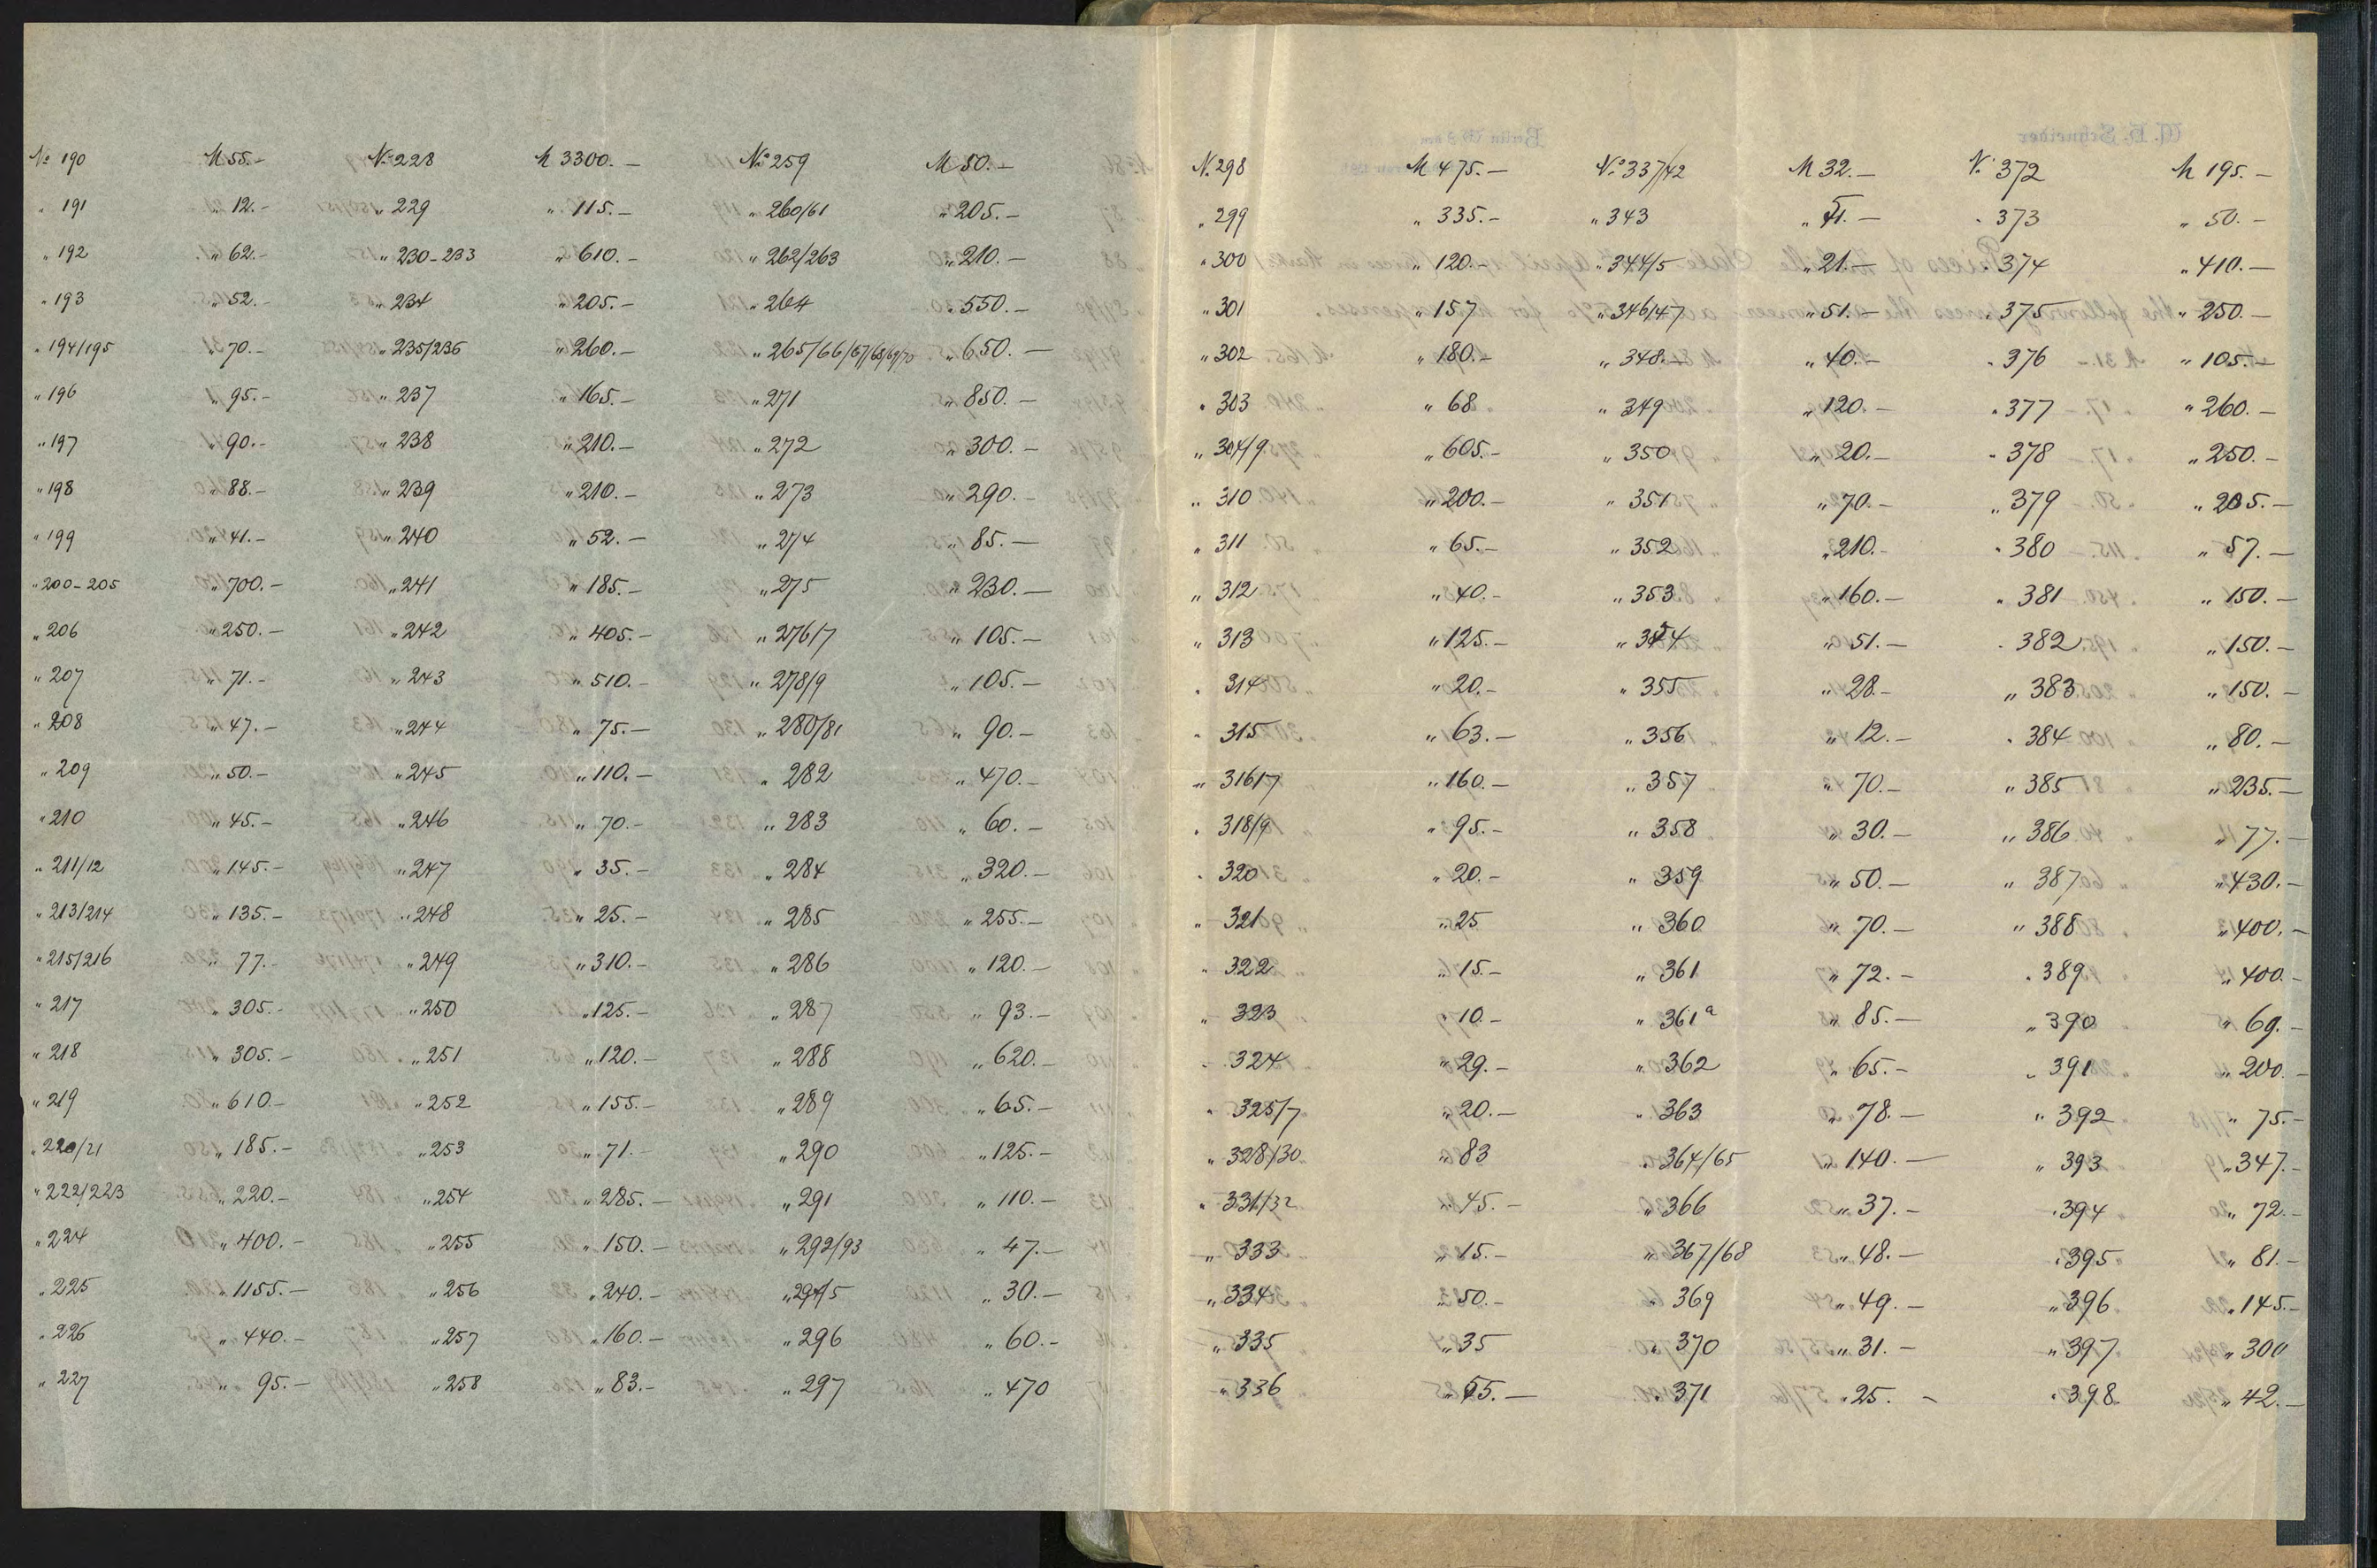 № 190 M 55.- № 228 M 3300.— № 259 M 50.—
" 191 " 12.- " 229 " 115.— " 260/61 " 205.—
" 192 " 62.- " 230-233 " 610.— " 262/263 " 210.—
" 193 " 52.- " 234 " 205.— " 264 " 550.—
" 194/195 " 70.- " 235/236 " 260.— " 265/66/67/68/69/70 " 650.—
" 196 " 95.- " 237 " 165.— " 271 " 850.—
" 197 " 90.- " 238 " 210.— " 272 " 300.—
" 198 " 88.- " 239 " 210.— " 273 " 290.—
" 199 " 41.- " 240 " 52.— " 274 " 85.—
" 200-205 " 700.- " 241 " 185.— " 275 " 230.—
" 206 " 250.- " 242 " 405.— " 276/7 " 105.—
" 207 " 71.- " 243 " 510.— " 278/9 " 105.—
" 208 " 47.- " 244 " 75.— " 280/81 " 90.—
" 209 " 50.- " 245 " 110.— " 282 " 470.—
" 210 " 45.- " 246 " 70.— " 283 " 60.—
" 211/12 " 145.- " 247 " 35.— " 284 " 320.—
" 213/214 " 135.- " 248 " 25.— " 285 " 255.—
" 215/216 " 77.- " 249 " 310.— " 286 " 120.—
" 217 " 305.- " 250 " 125.— " 287 " 93.—
" 218 " 305.- " 251 " 120.— " 288 " 620.—
" 219 " 610.- " 252 " 155.— " 289 " 65.—
" 220/21 " 185.- " 253 " 71.— " 290 " 125.—
" 222/223 " 220.- " 254 " 285.— " 291 " 110.—
" 224 " 400.- " 255 " 150.— " 292/93 " 47.—
" 225 " 1155.- " 256 " 240.— " 294/5 " 30.—
" 226 " 440.- " 257 " 160.— " 296 " 60.-
" 227 " 95.— " 258 " 83.— " 297 " 470
№ 298 M 475.— № 337/42 M 32.— № 372 M 195.—
" 299 " 335.- " 343 " 51.— " 373 " 50.—
" 300 " 120.- " 344/5 " 21.— " 374 " 410.—
" 301 " 157 " 346/47 " 51.— " 375 " 250.—
" 302 " 180.- " 348.- " 40.— " 376 " 105.—
" 303 " 68 " 349 " 120.— " 377 " 260.—
" 304/9 " 605.- " 350 " 20.— " 378 " 250.—
" 310 " 200.- " 351 " 70.— " 379 " 205.—
" 311 " 65.- " 352 " 210.- " 380 " 57.—
" 312 " 40.- " 353 " 160.— " 381 " 150.—
" 313 " 125.- " 354 " 51.— " 382 " 150.—
" 314 " 20.- " 355 " 28.- " 383 " 150.—
" 315 " 63.— " 356 " 12.— " 384 " 80.—
" 316/7 " 160.— " 357 " 70.— " 385 " 235.—
" 318/9 " 95.- " 358 " 30.— " 386 " 77.—
" 320 " 20.- " 359 " 50.— " 387 " 430.—
" 321 " 25 " 360 " 70.— " 388 " 400.—
" 322 " 15.- " 361 " 72.— " 389 " 400.-
" 323 " 10.- " 361a " 85.— " 390 " 69.—
" 324 " 29.- " 362 " 65.— " 391 " 200.—
" 325/7 " 20.— " 363 " 78.— " 392 " 75.—
" 328/30 " 83 " 364/65 " 140.— " 393 " 347.—
" 331/32 " 45.— " 366 " 37.— " 394 " 72.—
" 333 " 15.- " 367/68 " 48.— " 395 " 81.—
" 334 " 50.- " 369 " 49.— " 396 " 145.—
" 335 " 35 " 370 " 31.— " 397 " 300
" 336 " 371 " 25.- " 398 " 42.—